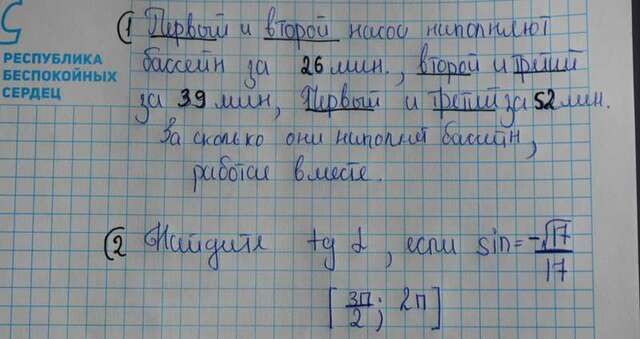 РЕСПУБЛИКА
БЕСПОКОЙНЫХ
СЕРДЕЦ
1 Первый и второй насос наполняют
бассейн за 26 мин., второй и третий
за 39 мин, Первый и третий за 52 мин.
За сколько они наполнят бассейн,
работая вместе.
2 Найдите tg α, если sin = -√17/17
[3π/2; 2π]